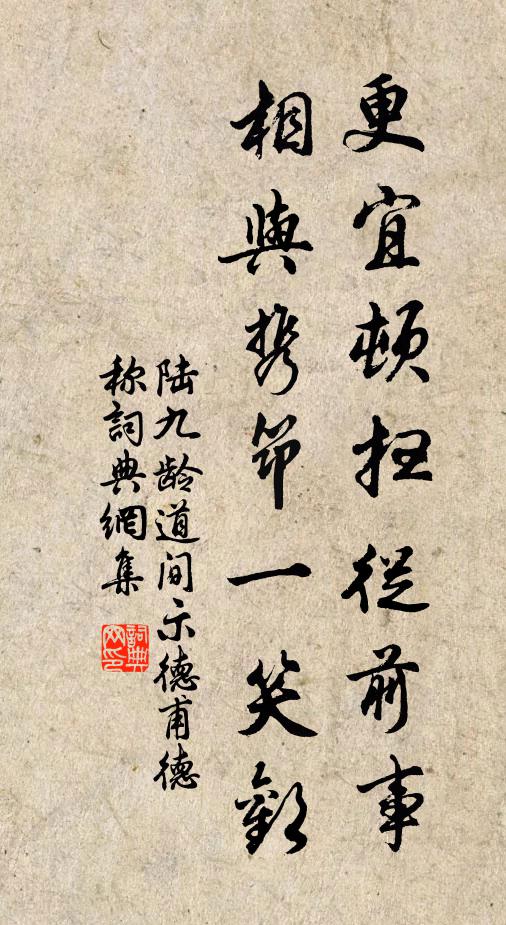 更宜頓扫從前事
相與携筇一笑歡
陆九龄道间示德甫德
称詞典網集
詞典
网印